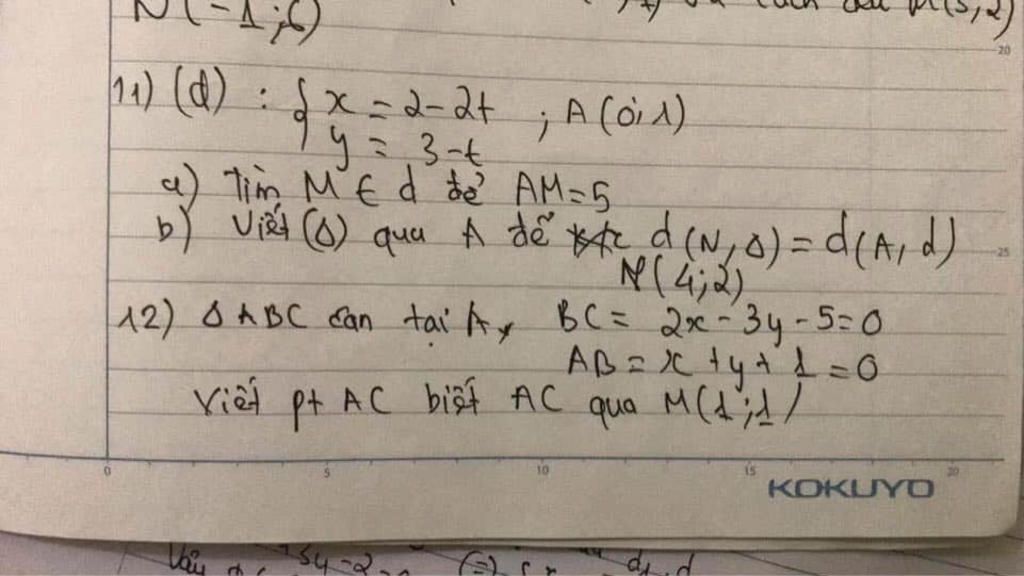 N(-1;6) M(5,2)
20
11) (d) : { x = 2-2t ; A(0;1)
y = 3-t
a) Tìm M ∈ d để AM=5
b) Viết (Δ) qua A để d(N,Δ) = d(A,d)
25
N(4;2)
12) Δ ABC cân tại A, BC = 2x-3y-5=0
AB = x+y+1=0
Viết pt AC biết AC qua M(1;1)
0 5 10 15 20
KOKUYO
Vậy